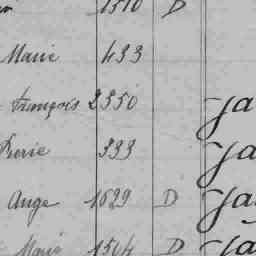 1510 D
Marie 433
François 2350 Ja
Pierre 333 Ja
Ange 1629 D Ja
Marie 1504 D Ja